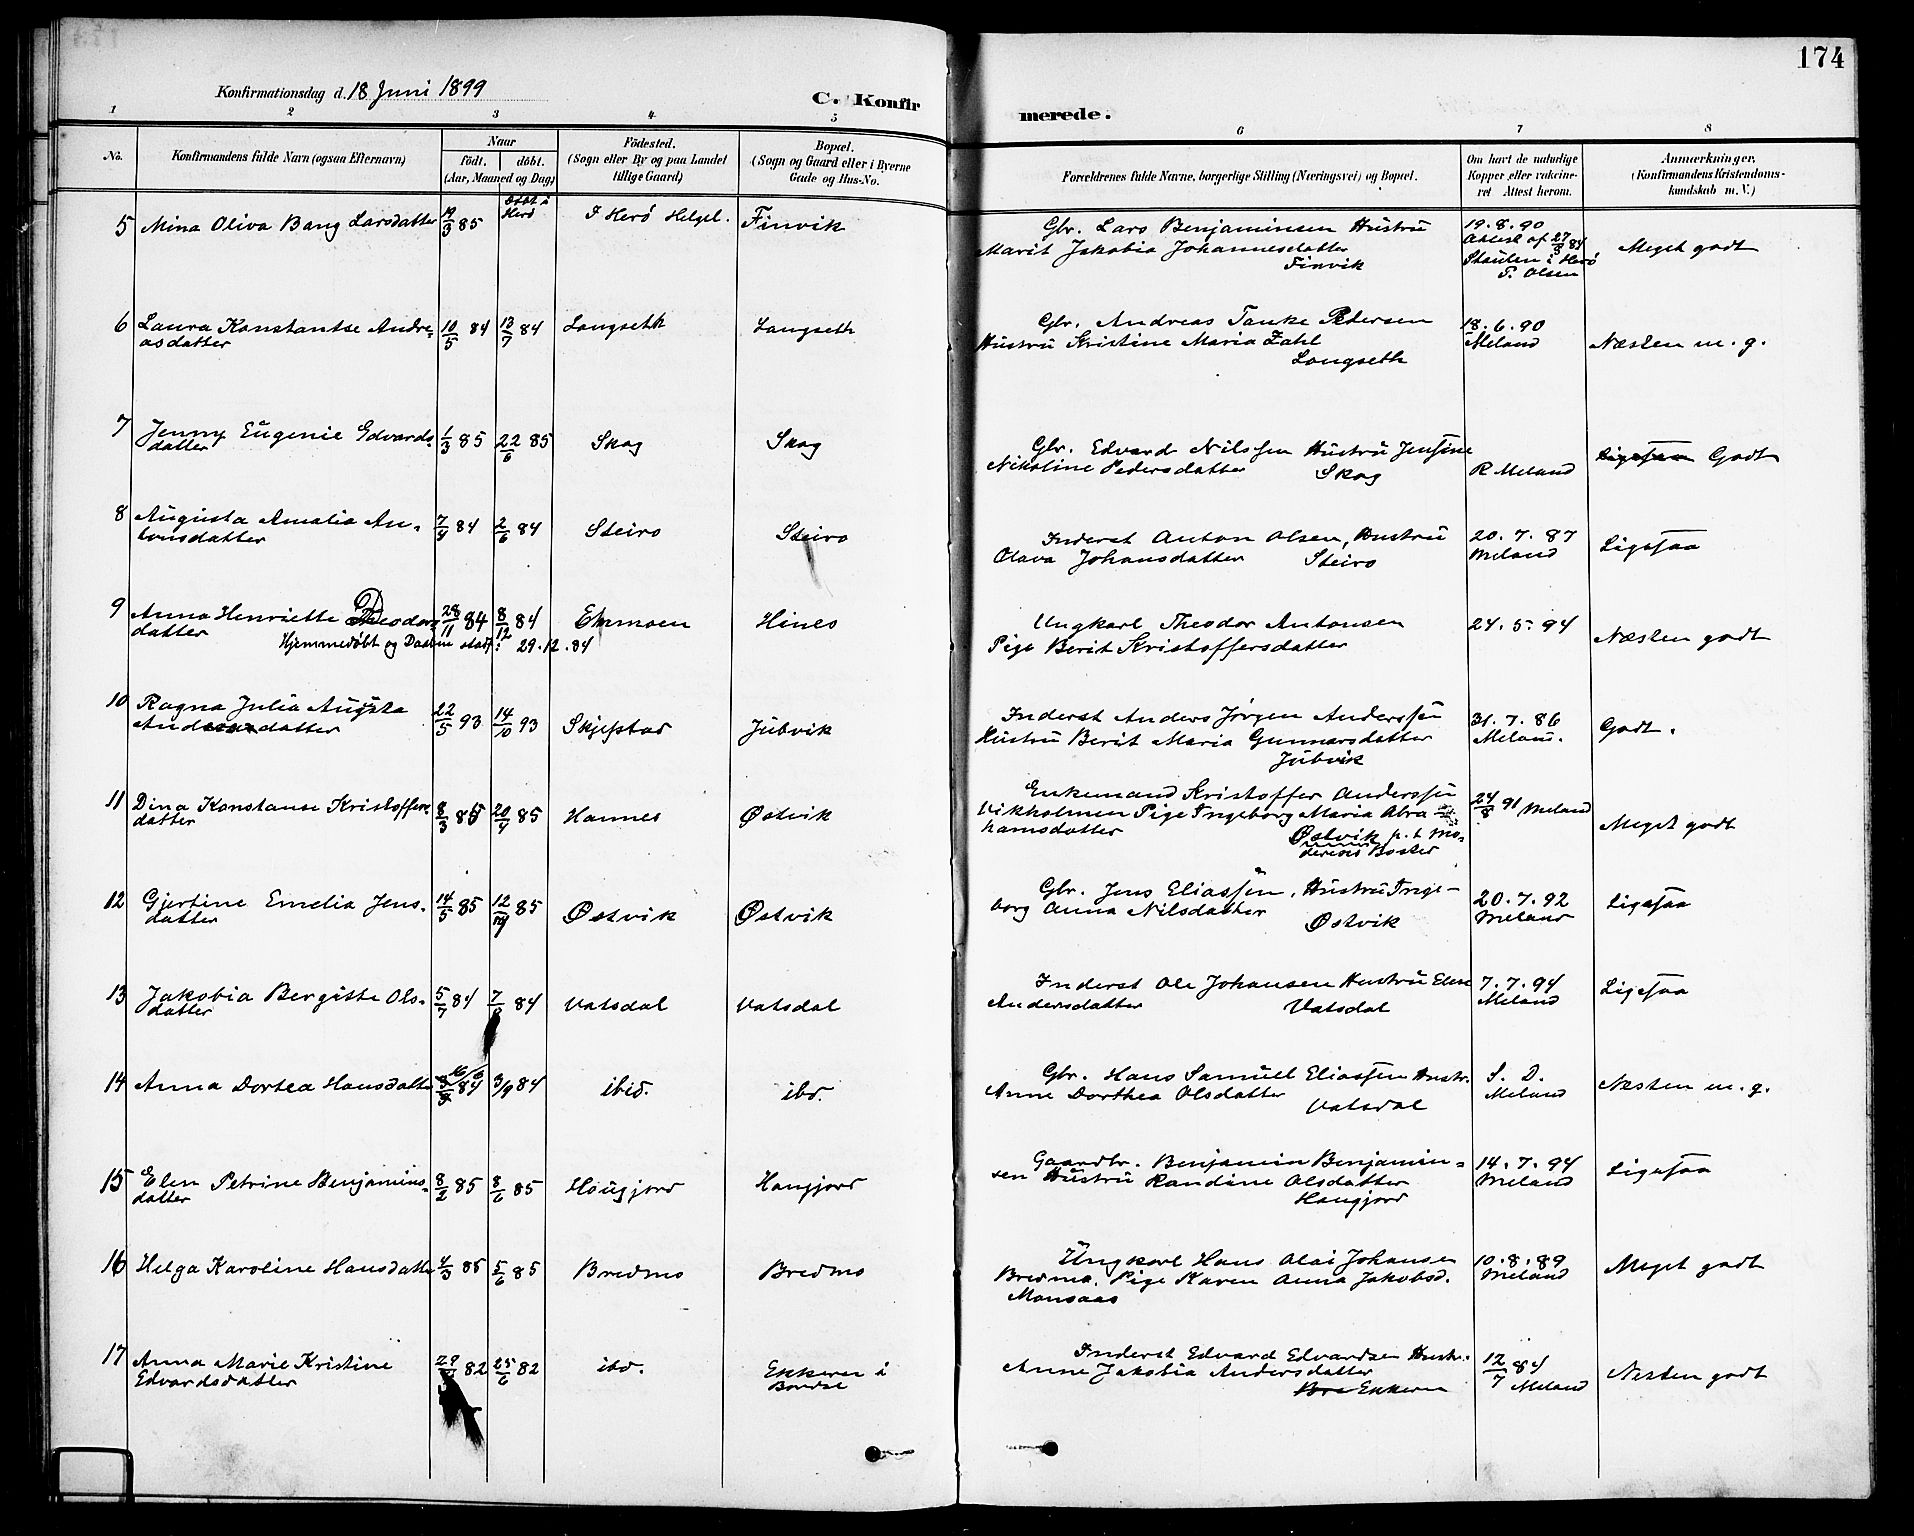 174
Konfirmationsdag d. 18 Juni 1899
C. Konfirmerede.
1 2 3 4 5 6 7 8
No. Konfirmandens fulde Navn (ogsaa Efternavn) Naar født. døbt. (Aar, Maaned og Dag) Fødested. (Sogn eller By og paa Landet tillige Gaard) Bopæl. (Sogn og Gaard eller i Byerne Gade og Hus-No. Forældrenes fulde Navne, borgerlige Stilling (Næringsvei) og Bopæl. Om havt de naturlige Kopper eller vaccineret. Attest herom. Anmærkninger, (Konfirmandens Kristendomskundskab m. V.)
døbt i
Herø
5 Mina Oliva Bang Larsdatter 85 I Herø Helgel. Finvik Gbr. Lars Benjaminsen Hustru 19.8.90
Marit Jakobia Johannesdatter Attest af 27/8 84 Meget godt
Finvik i Herø
P. Olsen
6 Laura Konstantse Andre- 10/5 84 13/7 84 Langseth Langseth Gbr. Andreas Tanke Petersen 18.6.90
asdatter Hustru Kristine Maria Zahl Meland Næsten m. g.
Langseth
7 Jenny Eugenie Edvards- 1/3 85 22/6 85 Skog Skog Gbr. Edvard Nilssen Hustru Jensine
datter Nikoline Pedersdatter Skog R Meland Ligesaa Godt
8 Augusta Amalia An- 7/4 84 2/6 84 Steiro Steiro Inderst Anton Olsen, Hustru 20.7.87
tonsdatter Olava Johansdatter Steiro Meland Ligesaa
9 Anna Henriette Theodors 28/11 84 8/12 84 Hines Ungkarl Theodor Antonsen 24.5.94
datter Pige Berit Kristoffersdatter Næsten godt
Hjemmedøbt og Daaben stadf: 29.12.84
10 Ragna Julia Augusta 22/5 93 14/10 93 Skjefstad Jubvik Inderst Anders Jørgen Anderssen 31.7.86
Andersdatter Hustru Berit Maria Gunnarsdatter Meland. Godt.
Jubvik
11 Dina Konstanse Kristoffers 8/3 85 20/4 85 Hannes Østvik Enkemand Kristoffer Anderssen 24/8 91 Meland
datter Vikholmen Pige Ingeborg Maria Abra-
hamsdatter Østvik p.t. Mo- Meget godt
derens Bosted
12 Gjertine Emelia Jens- 14/5 85 12/ 85 Østvik Østvik Gbr. Jens Eliassen, Hustru Inge-
datter borg Anna Nilsdatter Østvik 20.7.92 Meland Ligesaa
13 Jakobia Bergitte Ols- 5/7 84 7/ 84 Vatsdal Vatsdal Inderst Ole Johansen Hustru Elen 7.7.94
datter Andersdatter Vatsdal Meland Ligesaa
14 Anna Dortea Hansdatter 84 3/9 84 ibid. ibd. Gbr. Hans Samuel Eliassen Hustr. S. D.
Anne Dorthea Olsdatter Vatsdal Meland Næsten m. g.
15 Elen Petrine Benjamins- 8/2 85 8/6 85 Haugjord Haugjord Gaardbr. Benjamin Benjamin- 14.7.94
datter sen Hustru Randine Olsdatter Meland Ligesaa
Haugjord
16 Helga Karoline Hansdatter 4/3 85 5/6 85 Bredmo Bredmo Ungkarl Hans Olai Johansen 10.8.89
Bredmo. Pige Karen Anna Jakobsd. Meland Meget godt
Monsaas
17 Anna Marie Kristine 29/ 82 25/6 82 ibd. Ekkeren i Inderst Edvard Edvardsen Hustr. 12/7 84
Edvardsdatter Anne Jakobia Andersdatter Meland Næsten godt
Bre Ekkeren